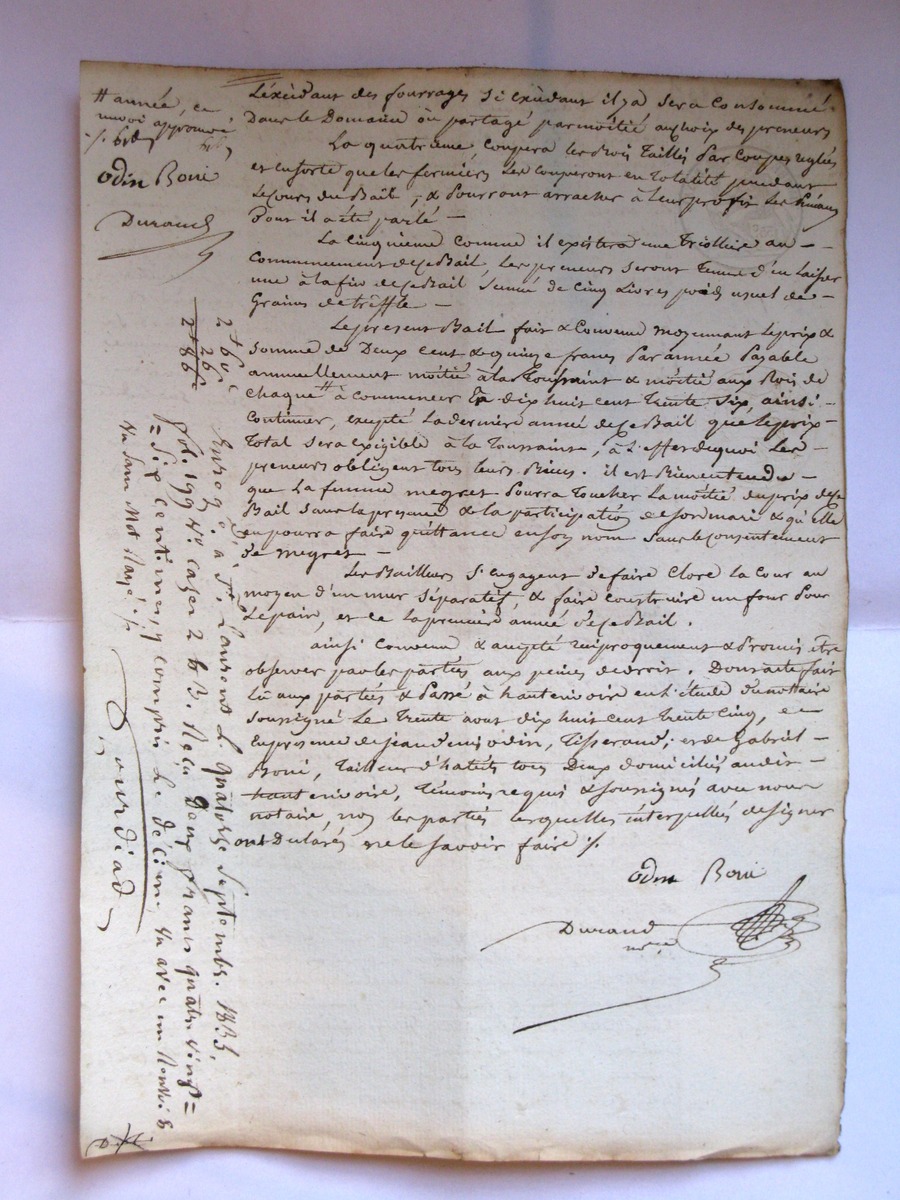 # année, ce
renvoi approuvé
odin Boni
Durand
L'éxédant des fourrages si exédant il y a sera Consommé
Dans le Domaine ou partagé par moitié au choix des preneurs
La quatrieme Coupera les Bois Taillis Par Coupes réglées
et ensorte que les fermiers les Couperont en totalité pendant
le Cours du Bail, & Pourront arracher à leur profit les
Dont il a été parlé –
La Cinquieme Comme il existera une Triolliere au –
Commencement de ce Bail, les preneurs seront tenus d'en laisser
une à la fin de ce Bail semée de Cinq Livres poids usuel de –
Grains de trêffle –
Le present Bail fait & Convenu moyennant le prix &
somme de Deux Cent & quinze francs Par année Payable
annuellement moitié à la Toussaint & moitié aux Rois de
Chaque # à Commencer En dix huit Cent Trente Six, ainsi
Continuer, excepté la derniere année de ce Bail que le prix –
Total sera exigible à la Toussaint, à L'effet de quoi Les
preneurs obligent tous leurs Biens. il est Bien entendu
que La femme megret Pourra Toucher La moitié du prix de ce
Bail sans la presence & la participation de son mari & qu'elle
en pourra faire quittance en son nom sans le Consentement
de megret –
Les Bailleurs s'engagent de faire Clore la Cour au
moyen d'un mur séparatif, & faire Construire un four Pour
le pain, et ce la premiere année de ce Bail.
ainsi Convenu & accepté réciproquement & Promis être
observer par les parties aux peines de droit. Dont acte fait
Lu aux parties & Passé à hauterivoire en l'étude du notaire
soussigné Le Trente aout dix huit Cent Trente Cinq, en
En presence de jean odin, Tisserand, et de Gabriel –
Boni, Tailleur d'habits tous Deux domiciliés audit –
hauterivoire, témoins requis & soussignés avec nous
notaire, non les parties lesquelles interpellées de signer
ont Déclarés ne le savoir faire ./.
odin Boni
Durand
nre
Enreg. à St Laurent L. quatorze Septembre 1835,
fol. 199 Vo Cases 2 & 3. Reçu Deux francs quatre vingt =
= Six Centimes y Compris le décime, Vu avec un Renvoi &
Vu sans Mot Rayé ./.